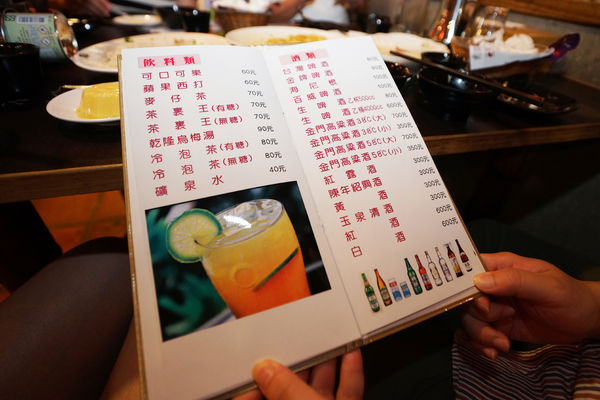 飲料類
可口可樂 60元
蘋果西打 60元
麥仔茶 70元
茶裏王(有糖) 70元
茶裏王(無糖) 70元
乾隆烏梅湯 90元
冷泡茶(有糖) 80元
冷泡茶(無糖) 80元
礦泉水 40元
酒類
台灣啤酒
金牌啤酒
海尼根
百威啤酒
生啤酒 乙杯500cc
生啤酒 乙桶4000cc
金門高粱酒38C(大) 700元
金門高粱酒38C(小) 350元
金門高粱酒58C(大) 700元
金門高粱酒58C(小) 350元
紅露酒 300元
陳年紹興酒 300元
黃酒 300元
玉泉清酒 300元
紅酒 600元
白酒 600元